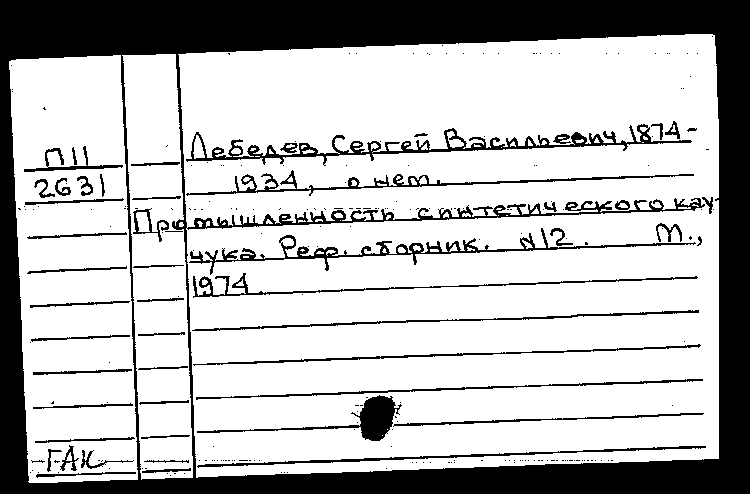 П11
2631
Лебедев, Сергей Васильевич, 1874-
1934, о нем.
Промышленность синтетического кау-
чука. Реф. сборник. №12. М.,
1974.
ГАК